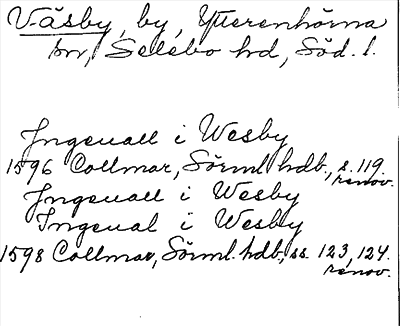 Väsby, by, Ytterenhörna
sn, Selebo hd, Söd. l.
Ingeuall i Wesby
1596 Collmar, Sörml hdb., s. 119.
renov.
Ingeuall i Wesby
Ingeual i Wesby
1598 Collmar, Sörml. hdb., ss. 123, 124.
renov.